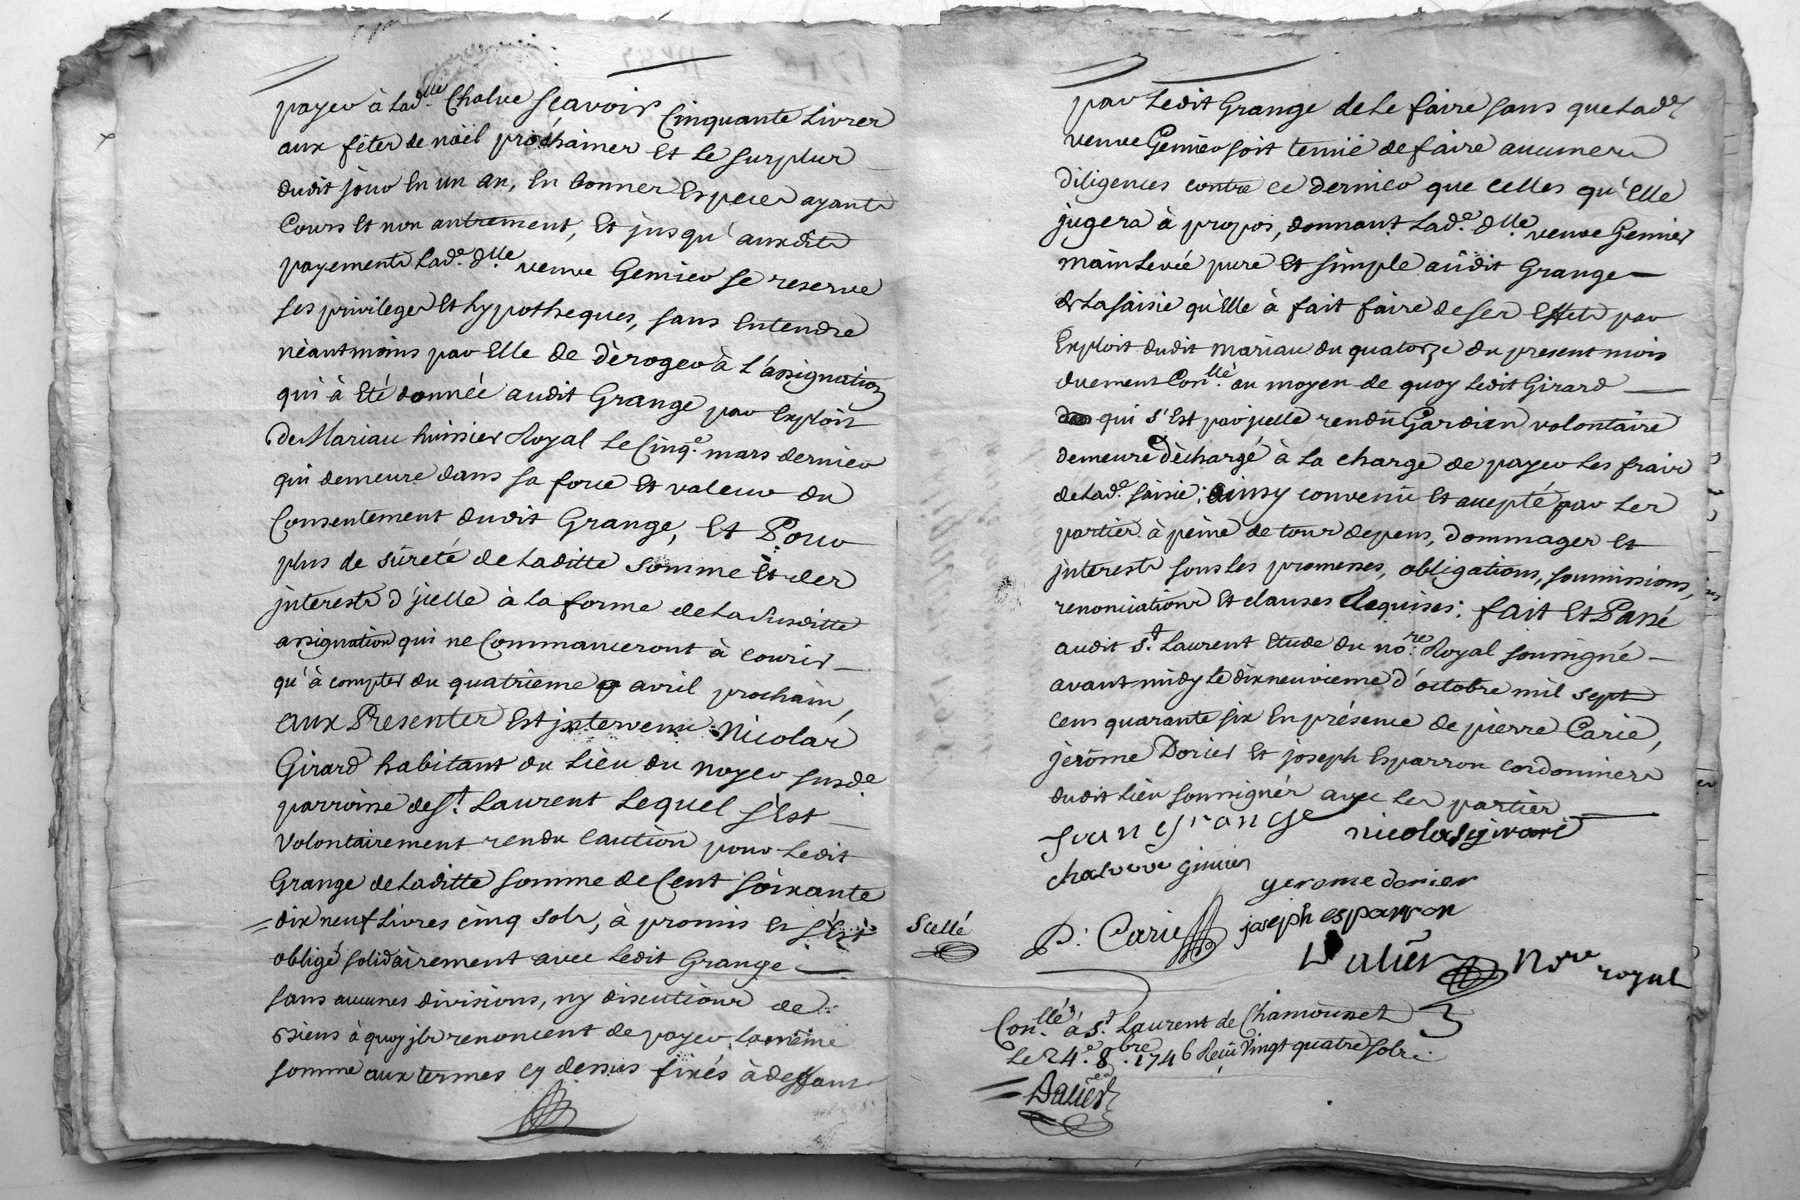 payer à lad.lle Chalue Scavoir Cinquante Livres
aux fêtes de nöel prochaines et le surplus
dudit jour En un an, En bonnes Especes ayants
Cours Et non autrement, Et jusqu'auxdits
payements Lad.e dlle veuve Gennier se reserve
ses privileges Et hypotheques, sans Entendre
nèantmoins par Elle de dèroger à l'assignation
qui à Eté donnée audit Grange par Exploit
de Mariau huissier Royal le Cinq.e mars dernier
qui demeure dans sa force Et valeur du
Consentement dudit Grange, Et Pour
plus de sûreté de laditte somme Et des
jnterests d'jcelle à la forme de la susditte
assignation qui ne Commanceront à courir
qu'à compter du quatrième avril prochain,
aux Presentes Est jntervenu Nicolas
Girard habitant du Lieu du noyer susd.e
parroisse de St. Laurent Lequel s'Est
Volontairement rendu Caution pour Ledit
Grange de laditte somme de Cent soixante
dix neuf Livres cinq sols, à promis et s'Est
obligé solidairement avec Ledit Grange
sans aucunes divisions, ny discutions de
Biens à quoy jls renoncent de payer la même
somme aux termes cy dessus fixés à deffaut
par Ledit Grange de le faire sans que lad.e
veuve Gennier soit tenüe de faire aucunes
diligences contre ce dernier que celles qu'Elle
jugera à propos, donnant Lad.e dlle veuve Gennier
mainlevée pure Et simple audit Grange
de la saisie qu'Elle à fait faire de ses Effets par
Exploit dudit Mariau du quatorze du present mois
duement Con.llé au moyen de quoy Ledit Girard
qui s'Est par jcelle rendu Gardien volontaire
demeure dèchargé à la charge de payer les frais
de lad.e saisie; ainsy convenu Et accepté par les
parties à peine de tous depens, dommages Et
jnterests sous les promesses, obligations, soumissions,
renonciations Et clauses Requises; fait Et Passé
audit St. Laurent Etude du no.re Royal soussigné
avant midy le dixneuvieme d'octobre mil sept
cens quarante six En présence de pierre Carie,
jerôme Dorier Et joseph Esparron cordonniers
dudit Lieu soussignés avec les parties
juan grange nicolas girard
chalvve giniér
gerome dorier
P. Carie joseph esparron
Scellé
Nore royal
Con.llé à St. Laurent de Chamousset
Le 24.e 8.bre 1746 Reçu Vingt quatre sols